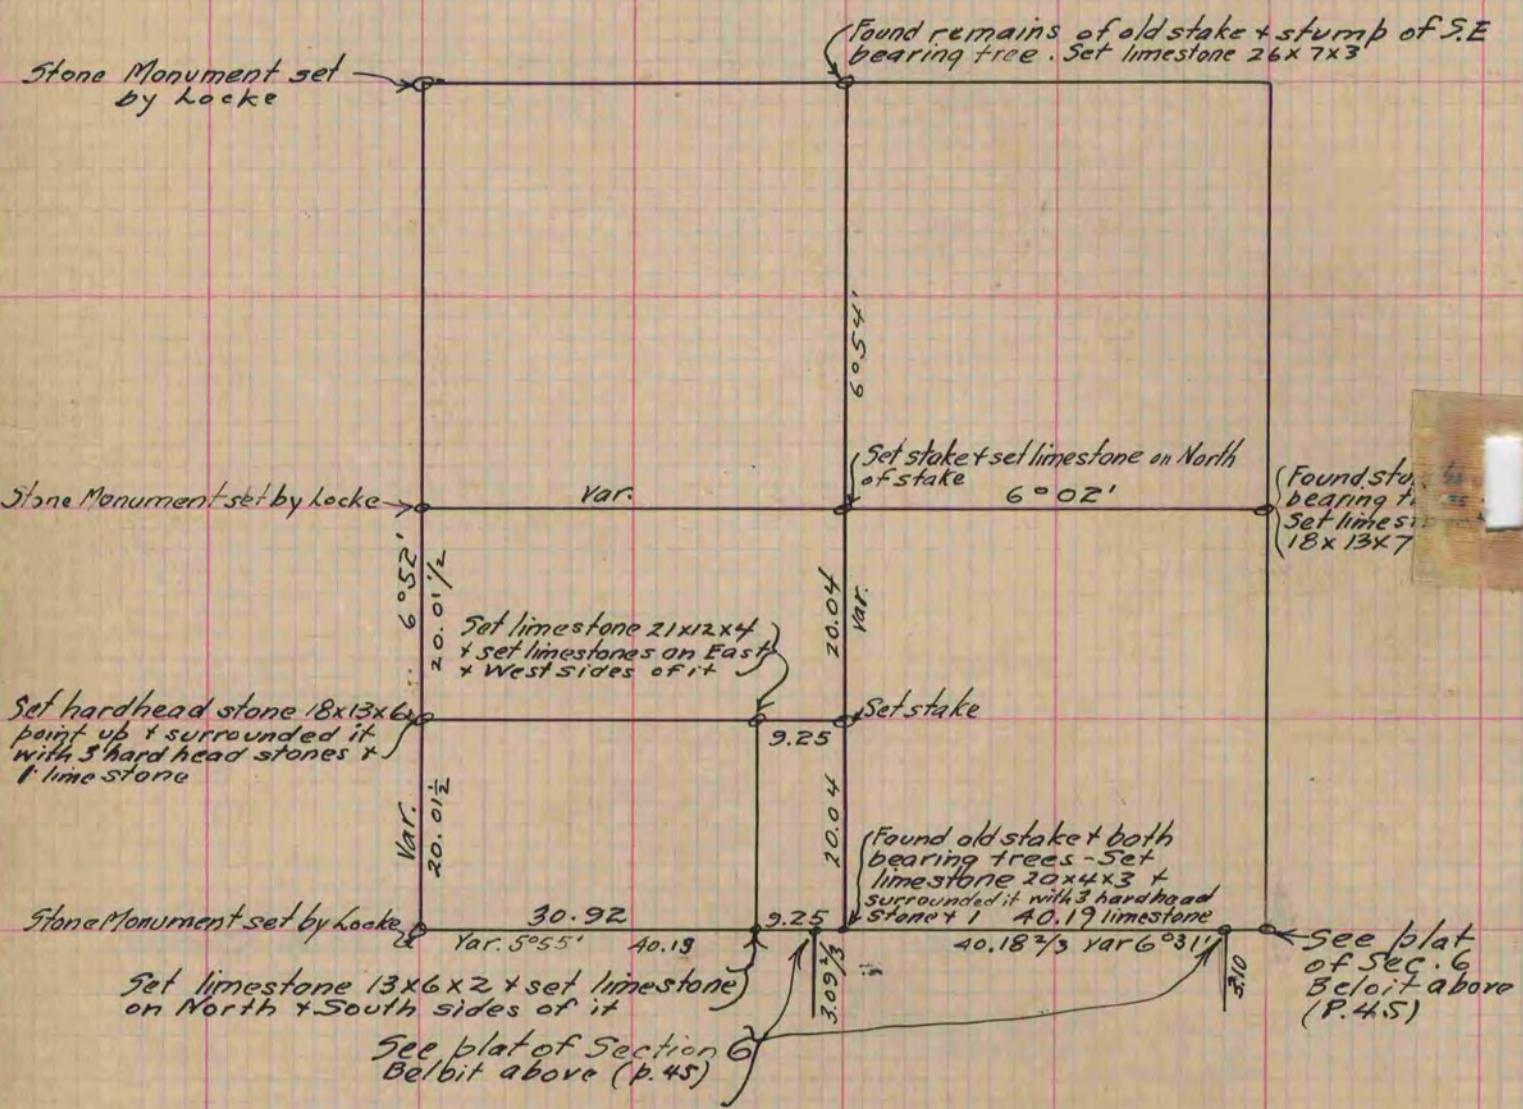 Found remains of old stake + stump of S.E
bearing tree. Set limestone 26x7x3
Stone Monument set
by Locke
6°54'
Set stake + set limestone on North
of stake
6°02'
Found
bearing
Set
18x13x7
Stone Monument set by Locke
Var.
6°52'
20.01 1/2
20.04
Var.
Set limestone 21x12x4
+ set limestones on East
+ West sides of it
Set hardhead stone 18x13x6
point up + surrounded it
with 3 hard head stones +
1 lime stone
Set stake
9.25
Var.
20.01 1/2
20.04
Found old stake + both
bearing trees - Set
limestone 20x4x3 +
surrounded it with 3 hardhead
stone + 1 40.19 limestone
Stone Monument set by Locke
30.92
9.25
Var. 5°55' 40.19
40.18 2/3 Var 6°31'
3.09 2/3
3.10
See plat
of Sec. 6
Beloit above
(P.45)
Set limestone 13x6x2 + set limestone
on North + South sides of it
See plat of Section 6
Beloit above (p. 45)